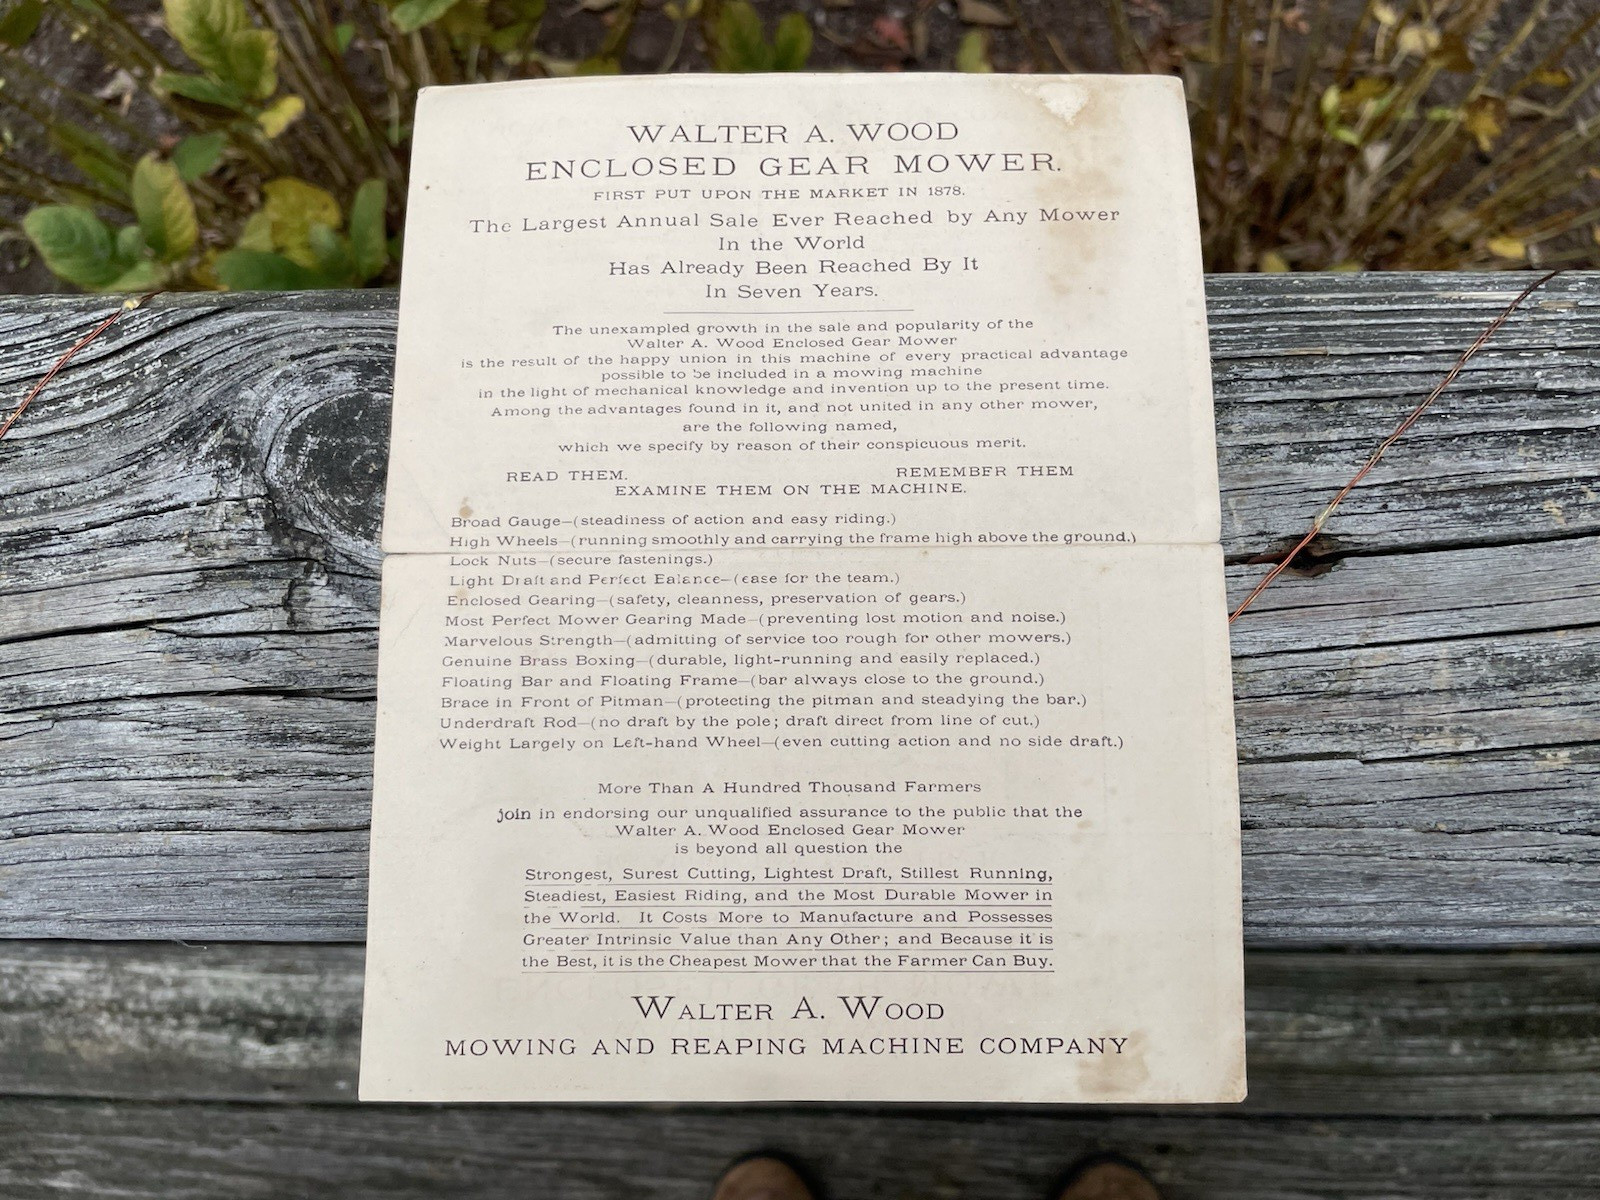 WALTER A. WOOD
ENCLOSED GEAR MOWER.
FIRST PUT UPON THE MARKET IN 1878.
The Largest Annual Sale Ever Reached by Any Mower
In the World
Has Already Been Reached By It
In Seven Years.
The unexampled growth in the sale and popularity of the
Walter A. Wood Enclosed Gear Mower
is the result of the happy union in this machine of every practical advantage
possible to be included in a mowing machine
in the light of mechanical knowledge and invention up to the present time.
Among the advantages found in it, and not united in any other mower,
are the following named,
which we specify by reason of their conspicuous merit.
READ THEM. REMEMBER THEM
EXAMINE THEM ON THE MACHINE.
Broad Gauge—(steadiness of action and easy riding.)
High Wheels—(running smoothly and carrying the frame high above the ground.)
Lock Nuts—(secure fastenings.)
Light Draft and Perfect Balance—(ease for the team.)
Enclosed Gearing—(safety, cleanness, preservation of gears.)
Most Perfect Mower Gearing Made—(preventing lost motion and noise.)
Marvelous Strength—(admitting of service too rough for other mowers.)
Genuine Brass Boxing—(durable, light-running and easily replaced.)
Floating Bar and Floating Frame—(bar always close to the ground.)
Brace in Front of Pitman—(protecting the pitman and steadying the bar.)
Underdraft Rod—(no draft by the pole; draft direct from line of cut.)
Weight Largely on Left-hand Wheel—(even cutting action and no side draft.)
More Than A Hundred Thousand Farmers
join in endorsing our unqualified assurance to the public that the
Walter A. Wood Enclosed Gear Mower
is beyond all question the
Strongest, Surest Cutting, Lightest Draft, Stillest Running,
Steadiest, Easiest Riding, and the Most Durable Mower in
the World. It Costs More to Manufacture and Possesses
Greater Intrinsic Value than Any Other; and Because it is
the Best, it is the Cheapest Mower that the Farmer Can Buy.
WALTER A. WOOD
MOWING AND REAPING MACHINE COMPANY